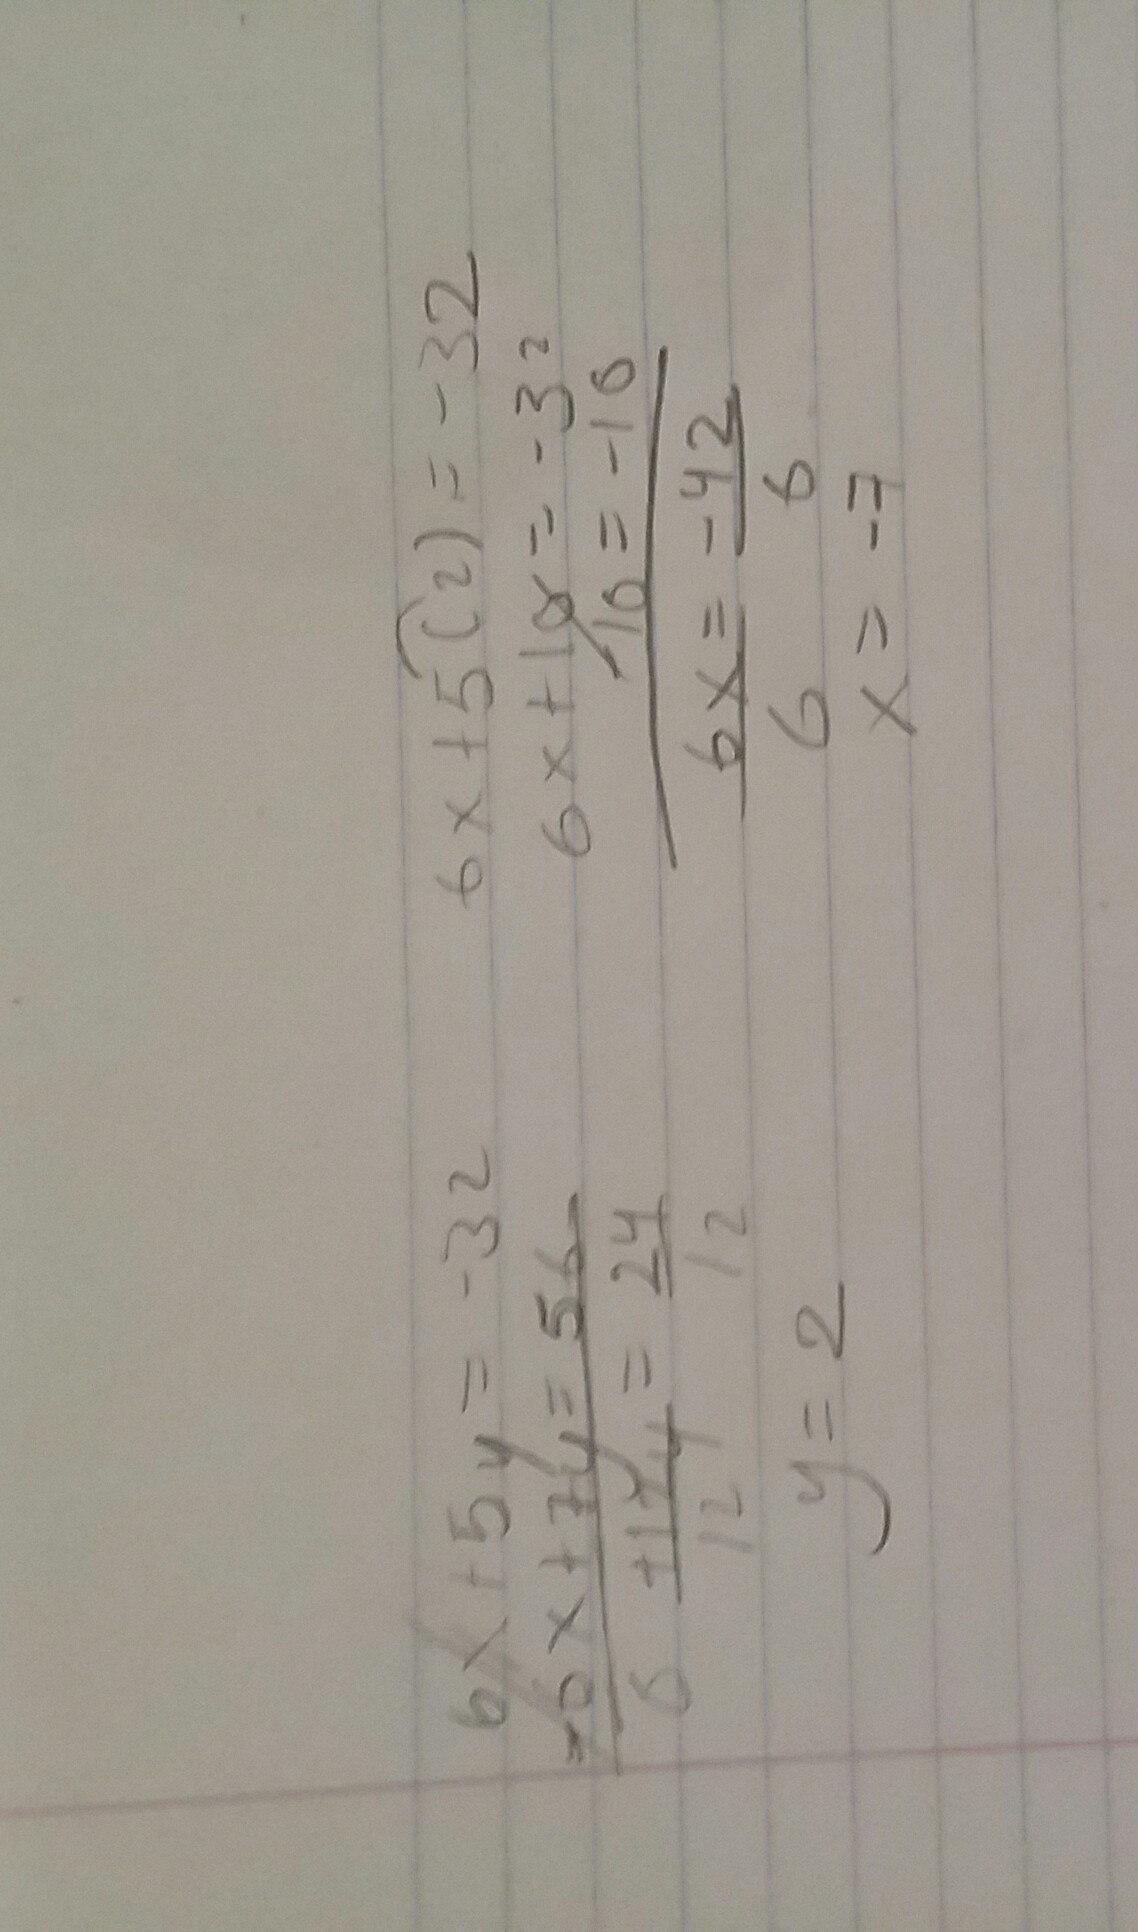 6x + 5y = -32
-6x + 7y = 56
0 +12y = 24
12 12
y = 2
6x + 5(2) = -32
6x + 10 = -32
-10 = -10
6x = -42
6 6
x = -7